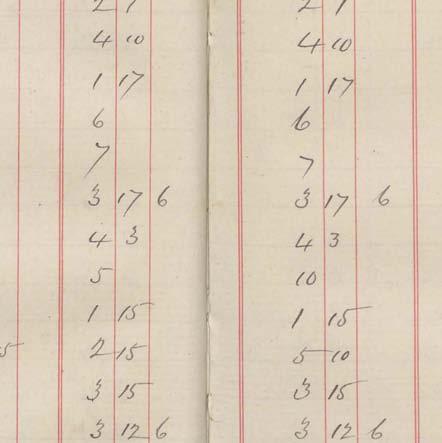 4 10 4 10
1 17 1 17
6 6
7 7
3 17 6 3 17 6
4 3 4 3
5 10
1 15 1 15
5 2 15 5 10
3 15 3 15
3 12 6 3 12 6